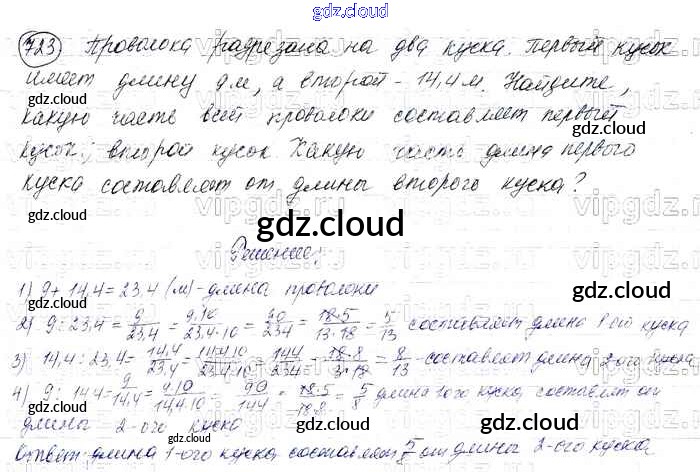 gdz.cloud
723 Проволока разрезана на два куска. Первый кусок
имеет длину 9 м, а второй - 14,4 м. Найдите,
какую часть всей проволоки составляет первый
кусок; второй кусок. Какую часть длина первого
куска составляет от длины второго куска?
gdz.cloud
Решение:
1) 9 + 14,4 = 23,4 (м) - длина проволоки
2) 9 : 23,4 = 9/23,4 = 9·10/23,4·10 = 90/234 = 18·5/13·18 = 5/13 составляет длина 1-ого куска
3) 14,4 : 23,4 = 14,4/23,4 = 14,4·10/23,4·10 = 144/234 = 18·8/13·18 = 8/13 - составляет длина 2-ого куска
4) 9 : 14,4 = 9/14,4 = 9·10/14,4·10 = 90/144 = 18·5/18·8 = 5/8 длина 1-ого куска составляет от
длины 2-ого куска
Ответ: длина 1-ого куска составляет от длины 2-ого куска
gdz.cloud